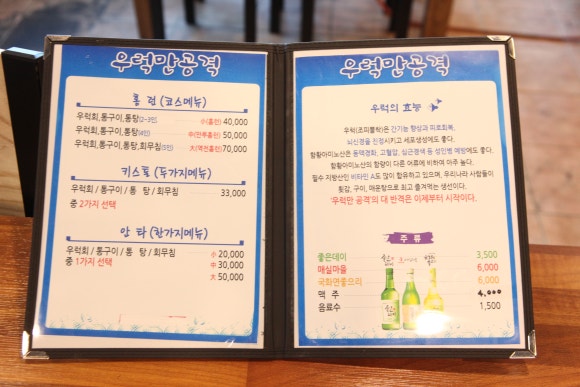 우럭만공격
홈 런 (코스메뉴)
우럭회,통구이,통탕(2~3인) 小(홈런) 40,000
우럭회,통구이,통탕(4인) 中(만루홈런) 50,000
우럭회,통구이,통탕,회무침(5인) 大(역전홈런)70,000
키스톤 (두가지메뉴)
우럭회 / 통구이 / 통 탕 / 회무침 33,000
중 2가지 선택
안 타 (한가지메뉴)
우럭회 / 통구이 / 통 탕 / 회무침 小 20,000
중 1가지 선택 中 30,000
大 50,000
우럭만공격
우럭의 효능
우럭(조피볼락)은 간기능 향상과 피로회복,
뇌신경을 진정시키고 세포생성에도 좋다.
함황아미노산은 동맥경화, 고혈압, 심근경색 등 성인병 예방에도 좋다.
함황아미노산의 함량이 다른 어류에 비하여 아주 높다.
필수 지방산인 비타민 A도 많이 함유하고 있으며, 우리나라 사람들이
횟감, 구이, 매운탕으로 최고 즐겨먹는 생선이다.
'우럭만 공격'의 대 반격은 이제부터 시작이다.
주 류
좋은데이 3,500
매실마을 6,000
국화면좋으리 6,000
맥 주 4,000
음료수 1,500